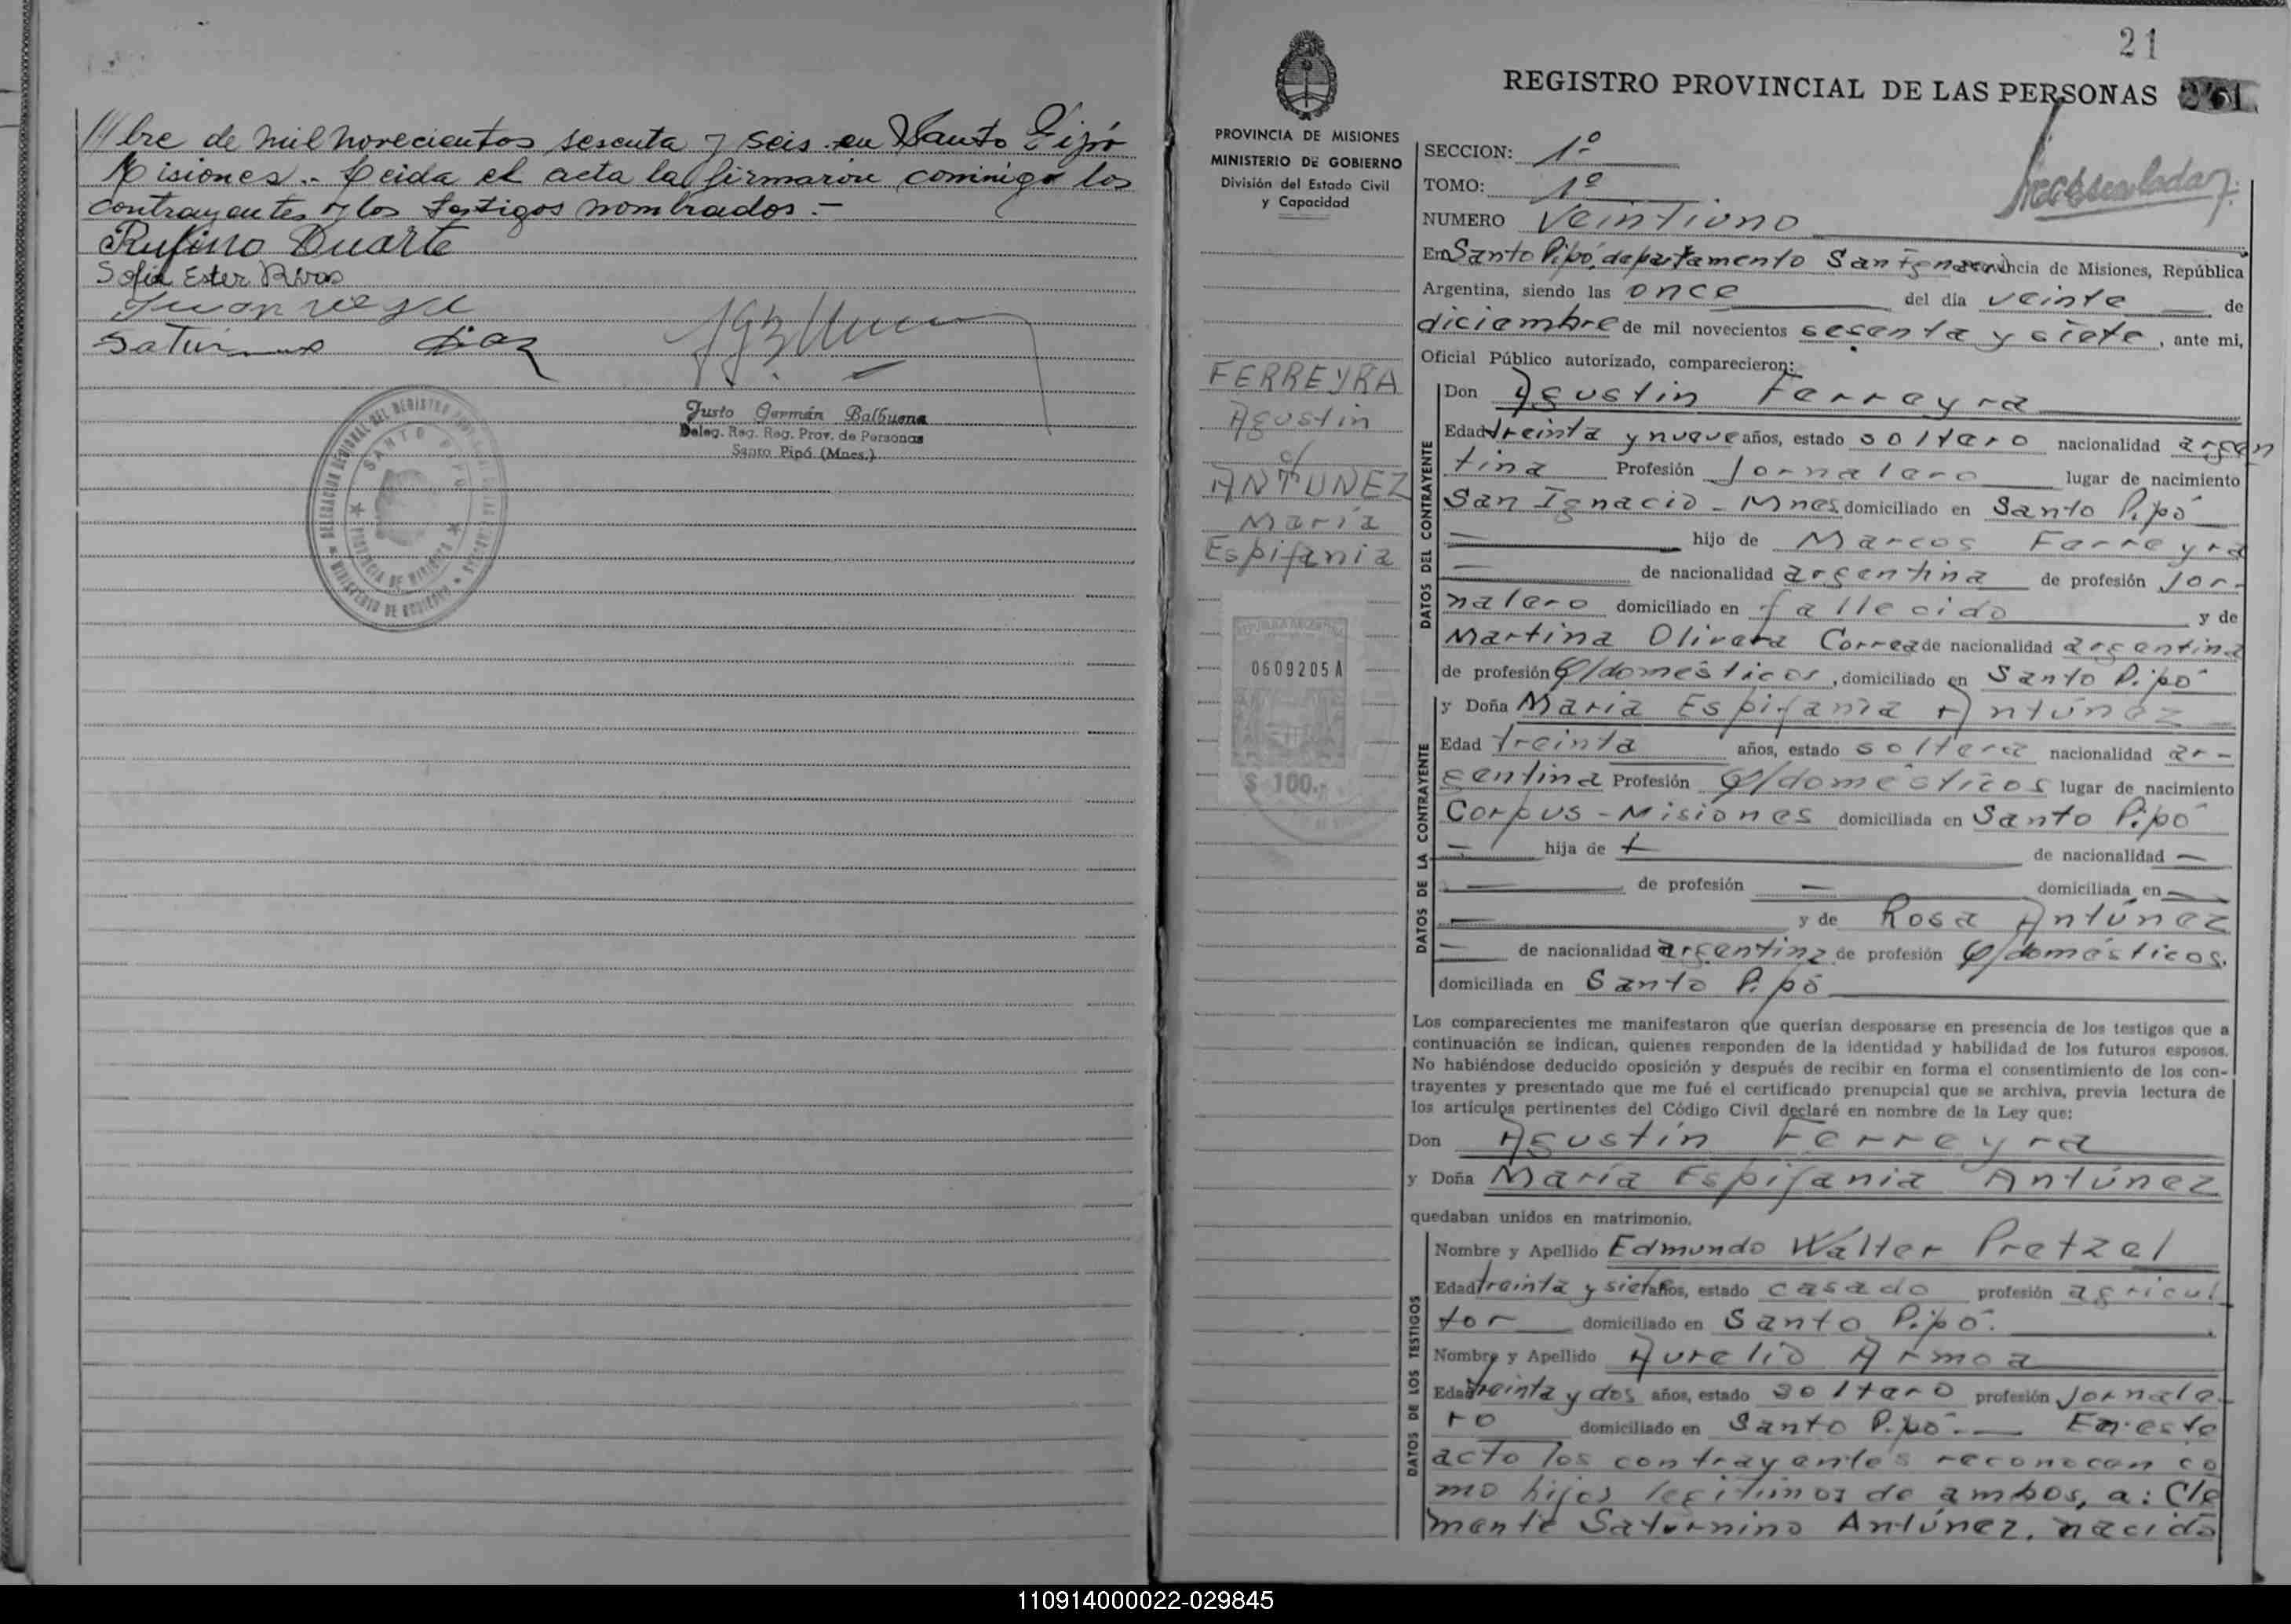 bre de mil novecientos sesenta y seis en Santo Pipó
Misiones.- Leida el acta la firmaron conmigo los
contrayentes y los testigos nombrados.-
Rufino Duarte
Sofia Ester Rivas
Juan
Saturnino Diaz
Justo Germán Balbuena
Deleg. Reg. Reg. Prov. de Personas
Santo Pipó (Mnes.)
SANTO PIPO
PROVINCIA DE MISIONES
MINISTERIO DE GOBIERNO
21
REGISTRO PROVINCIAL DE LAS PERSONAS
PROVINCIA DE MISIONES
MINISTERIO DE GOBIERNO
División del Estado Civil
y Capacidad
SECCION: 1º
TOMO: 1º
NUMERO Veintiuno
En Santo Pipó, departamento San Ignacio provincia de Misiones, República
Argentina, siendo las once del día veinte de
diciembre de mil novecientos sesenta y siete, ante mi,
Oficial Público autorizado, comparecieron:
FERREYRA
Agustin
c/
ANTUNEZ
María
Espifania
0609205 A
$ 100.-
DATOS DEL CONTRAYENTE
Don Agustin Ferreyra
Edad treinta y nueve años, estado soltero nacionalidad argen
tina Profesión Jornalero lugar de nacimiento
San Ignacio - Mnes. domiciliado en Santo Pipó
hijo de Marcos Ferreyra
de nacionalidad argentina de profesión Jor-
nalero domiciliado en fallecido y de
Martina Olivera Correa de nacionalidad argentina
de profesión q/domésticos, domiciliado en Santo Pipó
DATOS DE LA CONTRAYENTE
y Doña María Espifania Antúnez
Edad treinta años, estado soltera nacionalidad ar-
gentina Profesión q/domésticos lugar de nacimiento
Corpus - Misiones domiciliada en Santo Pipó
hija de de nacionalidad —
— de profesión — domiciliada en —
y de Rosa Antúnez
de nacionalidad argentina de profesión q/domésticos.
domiciliada en Santo Pipó
Los comparecientes me manifestaron que querían desposarse en presencia de los testigos que a
continuación se indican, quienes responden de la identidad y habilidad de los futuros esposos.
No habiéndose deducido oposición y después de recibir en forma el consentimiento de los con-
trayentes y presentado que me fué el certificado prenupcial que se archiva, previa lectura de
los artículos pertinentes del Código Civil declaré en nombre de la Ley que:
Don Agustín Ferreyra
y Doña María Espifania Antúnez
quedaban unidos en matrimonio.
DATOS DE LOS TESTIGOS
Nombre y Apellido Edmundo Walter Pretzel
Edad treinta y siete años, estado casado profesión agricul
tor domiciliado en Santo Pipó.
Nombre y Apellido Aurelio Armoa
Edad treinta y dos años, estado soltero profesión Jornale-
ro domiciliado en Santo Pipó.— En este
acto los contrayentes reconocen co
mo hijos legítimos de ambos, a: Cle
mente Saturnino Antúnez, nacido
110914000022-029845